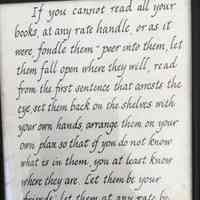 If you cannot read all your
books, at any rate handle, or as it
were fondle them - peer into them, let
them fall open where they will, read
from the first sentence that arrests the
eye, set them back on the shelves with
your own hands, arrange them on your
own plan so that if you do not know
what is in them, you at least know
where they are. Let them be your
friends; let them at any rate be